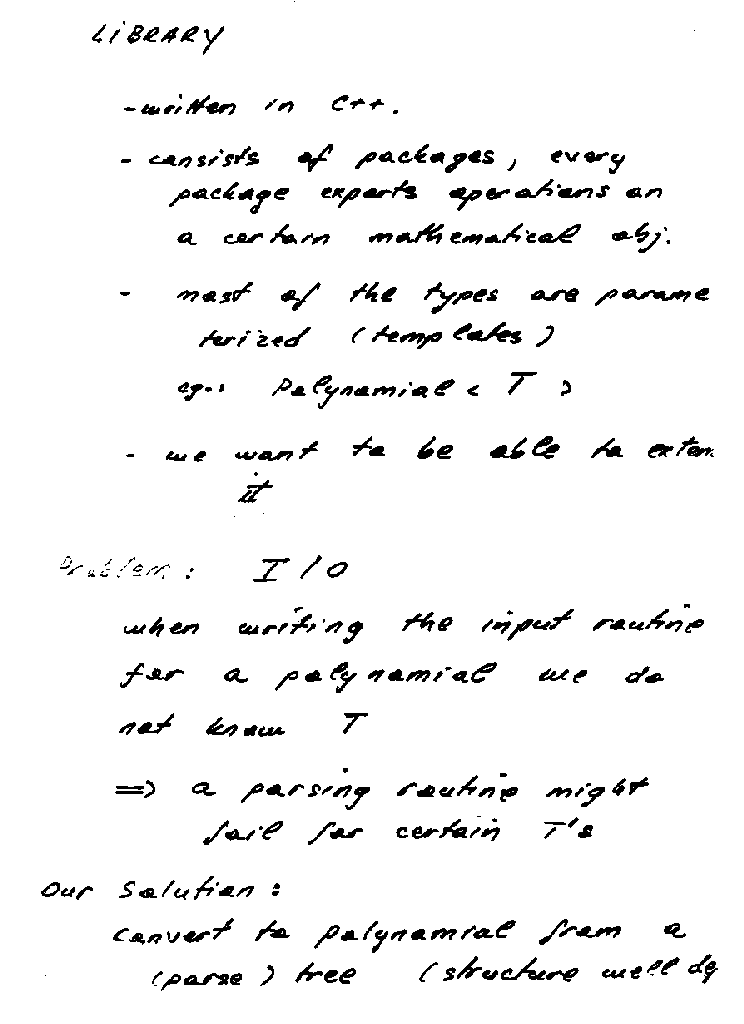 LIBRARY
- written in C++.
- consists of packages, every
package exports operations on
a certain mathematical obj.
- most of the types are parame
terized (templates)
eg.: Polynomial < T >
- we want to be able to exten
it
Problem: I/O
when writing the input routine
for a polynomial we do
not know T
=> a parsing routine might
fail for certain T's
Our Solution:
convert to polynomial from a
(parse) tree (structure well de